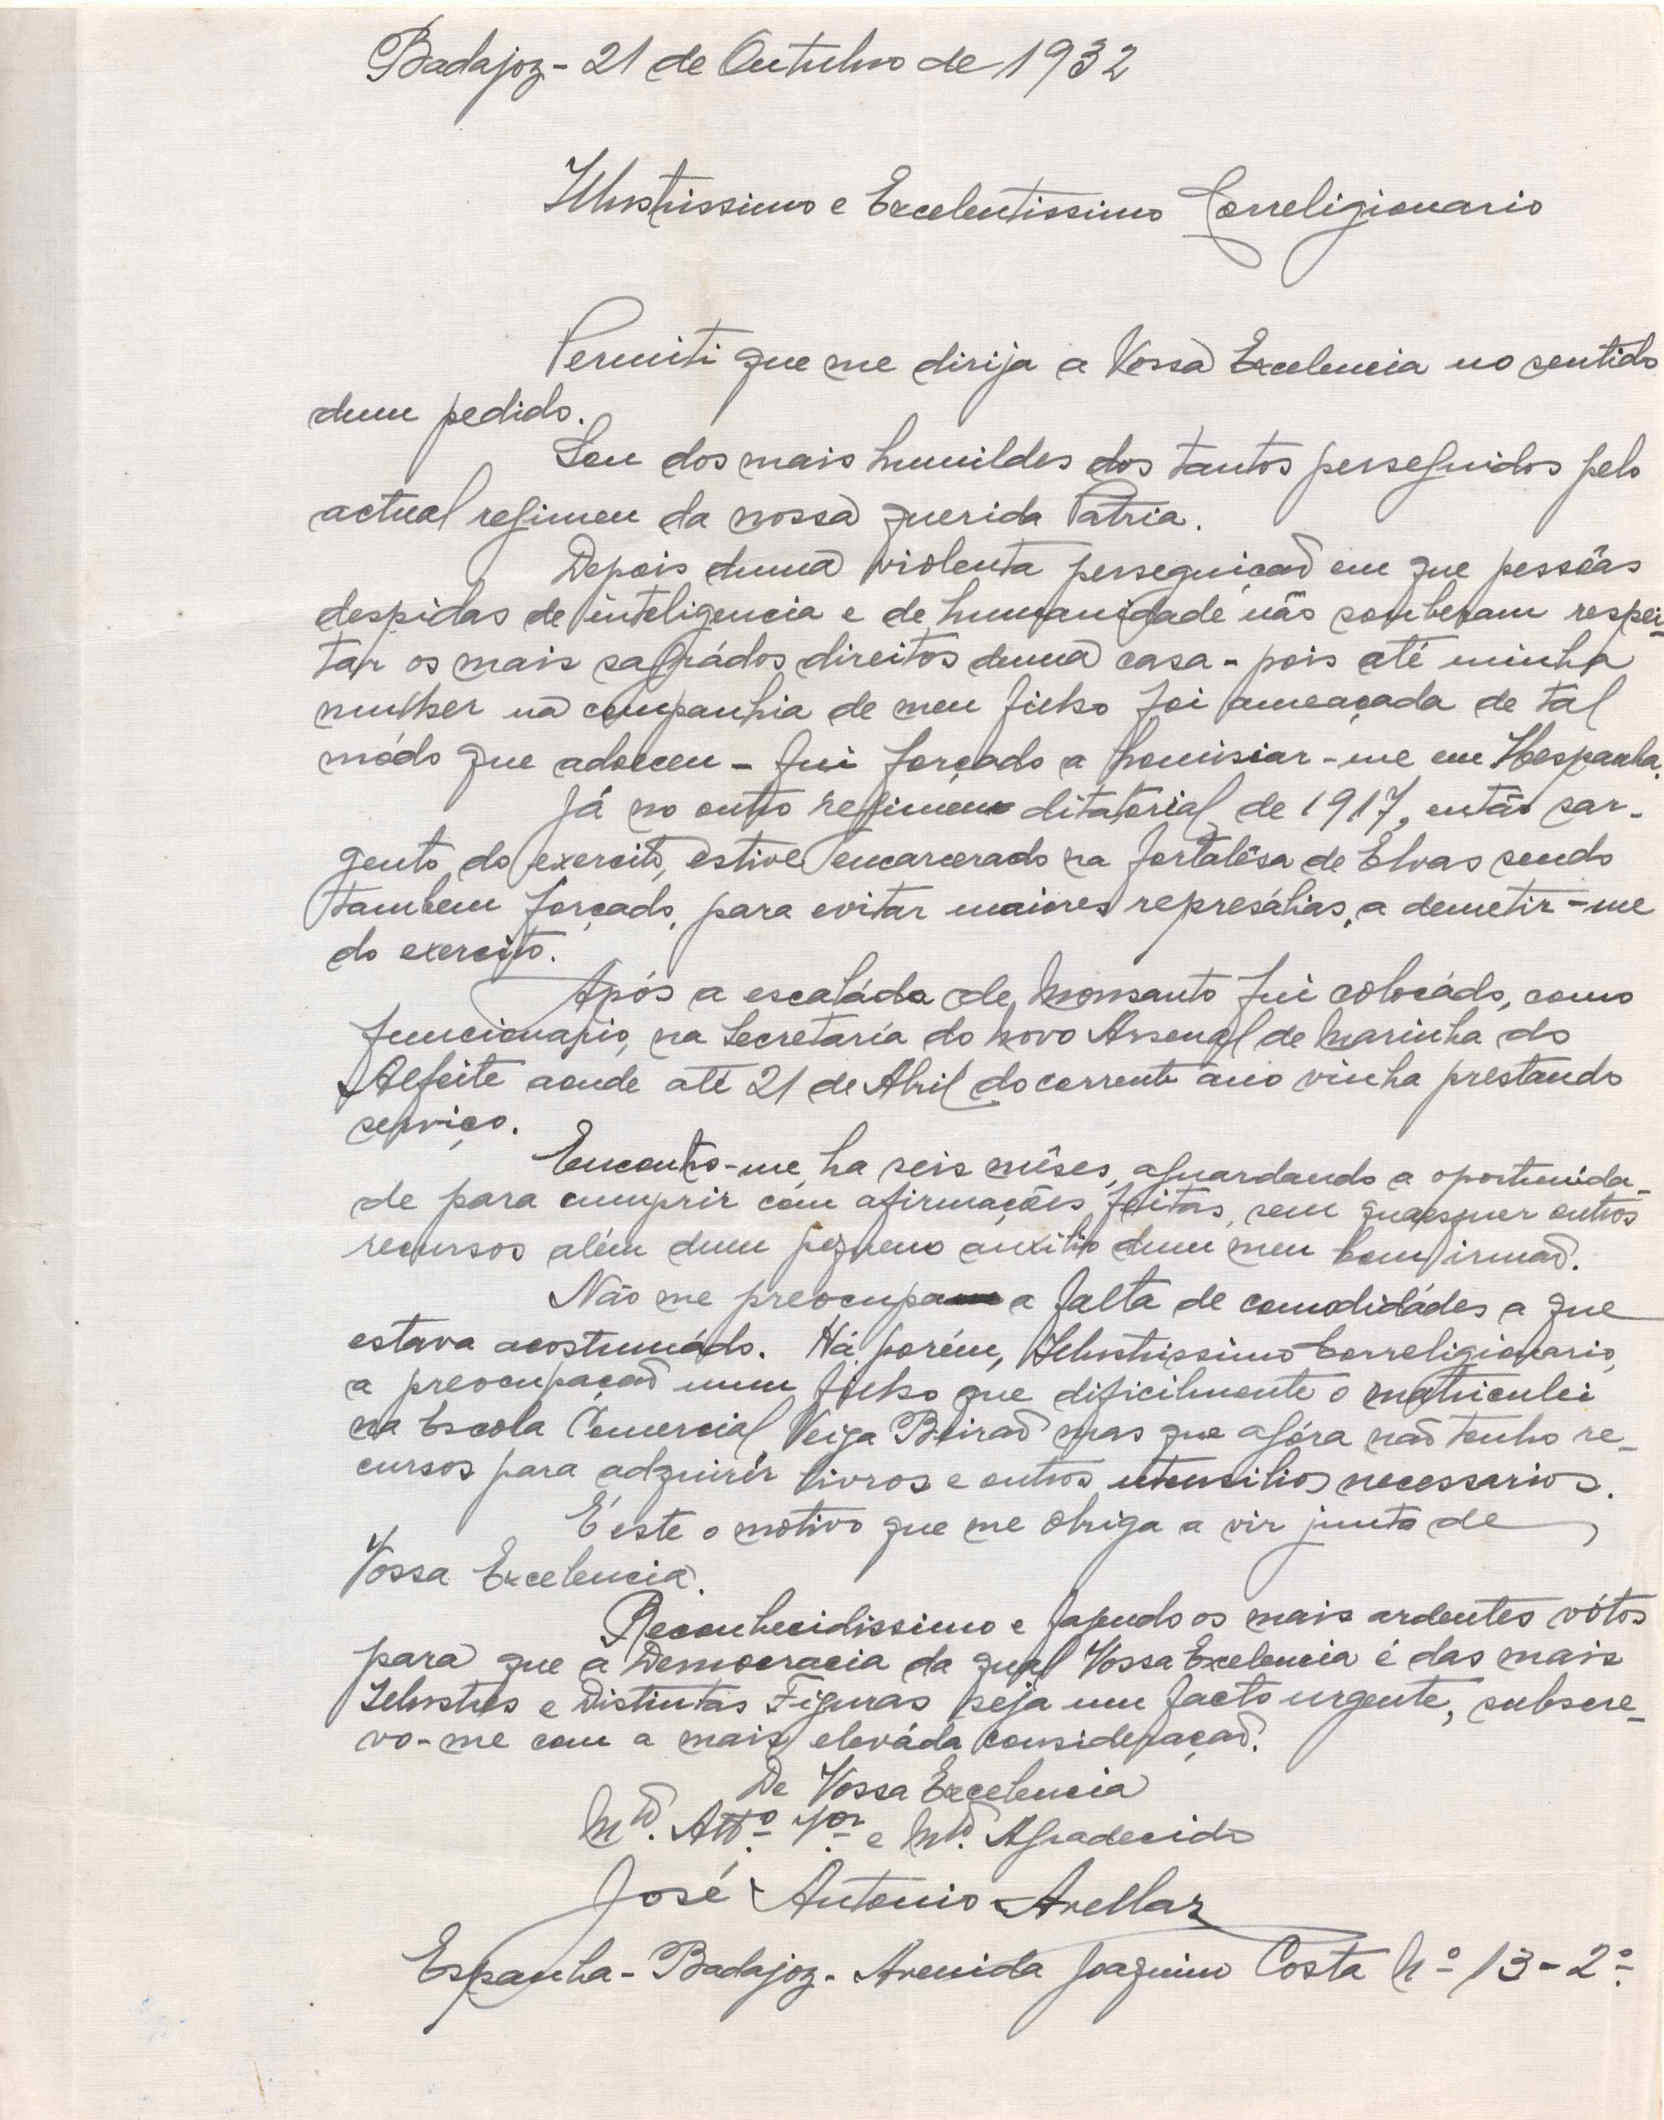 Badajoz - 21 de Outubro de 1932
Illustrissimo e Excelentissimo Correligionario
Permiti que me dirija a Vossa Excelencia no sentido
dum pedido.
Sou dos mais humildes dos tantos perseguidos pelo
actual regimen da nossa querida Patria.
Depois duma violenta perseguição em que pessôas
despidas de inteligencia e de humanidade não souberam respei-
tar os mais sagrádos direitos duma casa - pois até minha
mulher na companhia de meu filho foi ameaçada de tal
módo que adoeceu - fui forçado a homisiar-me em Hespanha.
Já no outro regimen ditatorial de 1917, então sar-
gento do exercito, estive encarcerado na fortalêsa de Elvas sendo
tambem forçado, para evitar maiores represálias, a demetir-me
do exercito.
Após a escaláda de Monsanto fui colocádo, como
funcionario, na Secretaría do novo Arsenal de Marinha do
Alfeite aonde até 21 de Abril do corrente ano vinha prestando
serviço.
Encontro-me, ha seis mêses, aguardando a oportunida-
de para cumprir com afirmações feitas, sem quaesquer outros
recursos além dum pequeno auxilio dum meu bom irmão.
Não me preocupa a falta de comodidádes a que
estava acostumádo. Há porém, Illustrissimo Correligionario,
a preocupação num filho que dificilmente o matriculei
na Escola Comercial Veiga Beirão mas que agóra não tenho re-
cursos para adquirir livros e outros utensilios necessarios.
É este o motivo que me obriga a vir junto de
Vossa Excelencia.
Reconhecidissimo e fazendo os mais ardentes vótos
para que a Democracia da qual Vossa Excelencia é das mais
Illustres e Distintas Figuras seja um facto urgente, subscre-
vo-me com a mais eleváda consideração.
De Vossa Excelencia
Mtº. Attº. Vor. e Mtº. Agradecido
José Antonio Avellar
Espanha - Badajoz - Avenida Joaquim Costa Nº 13 - 2º.